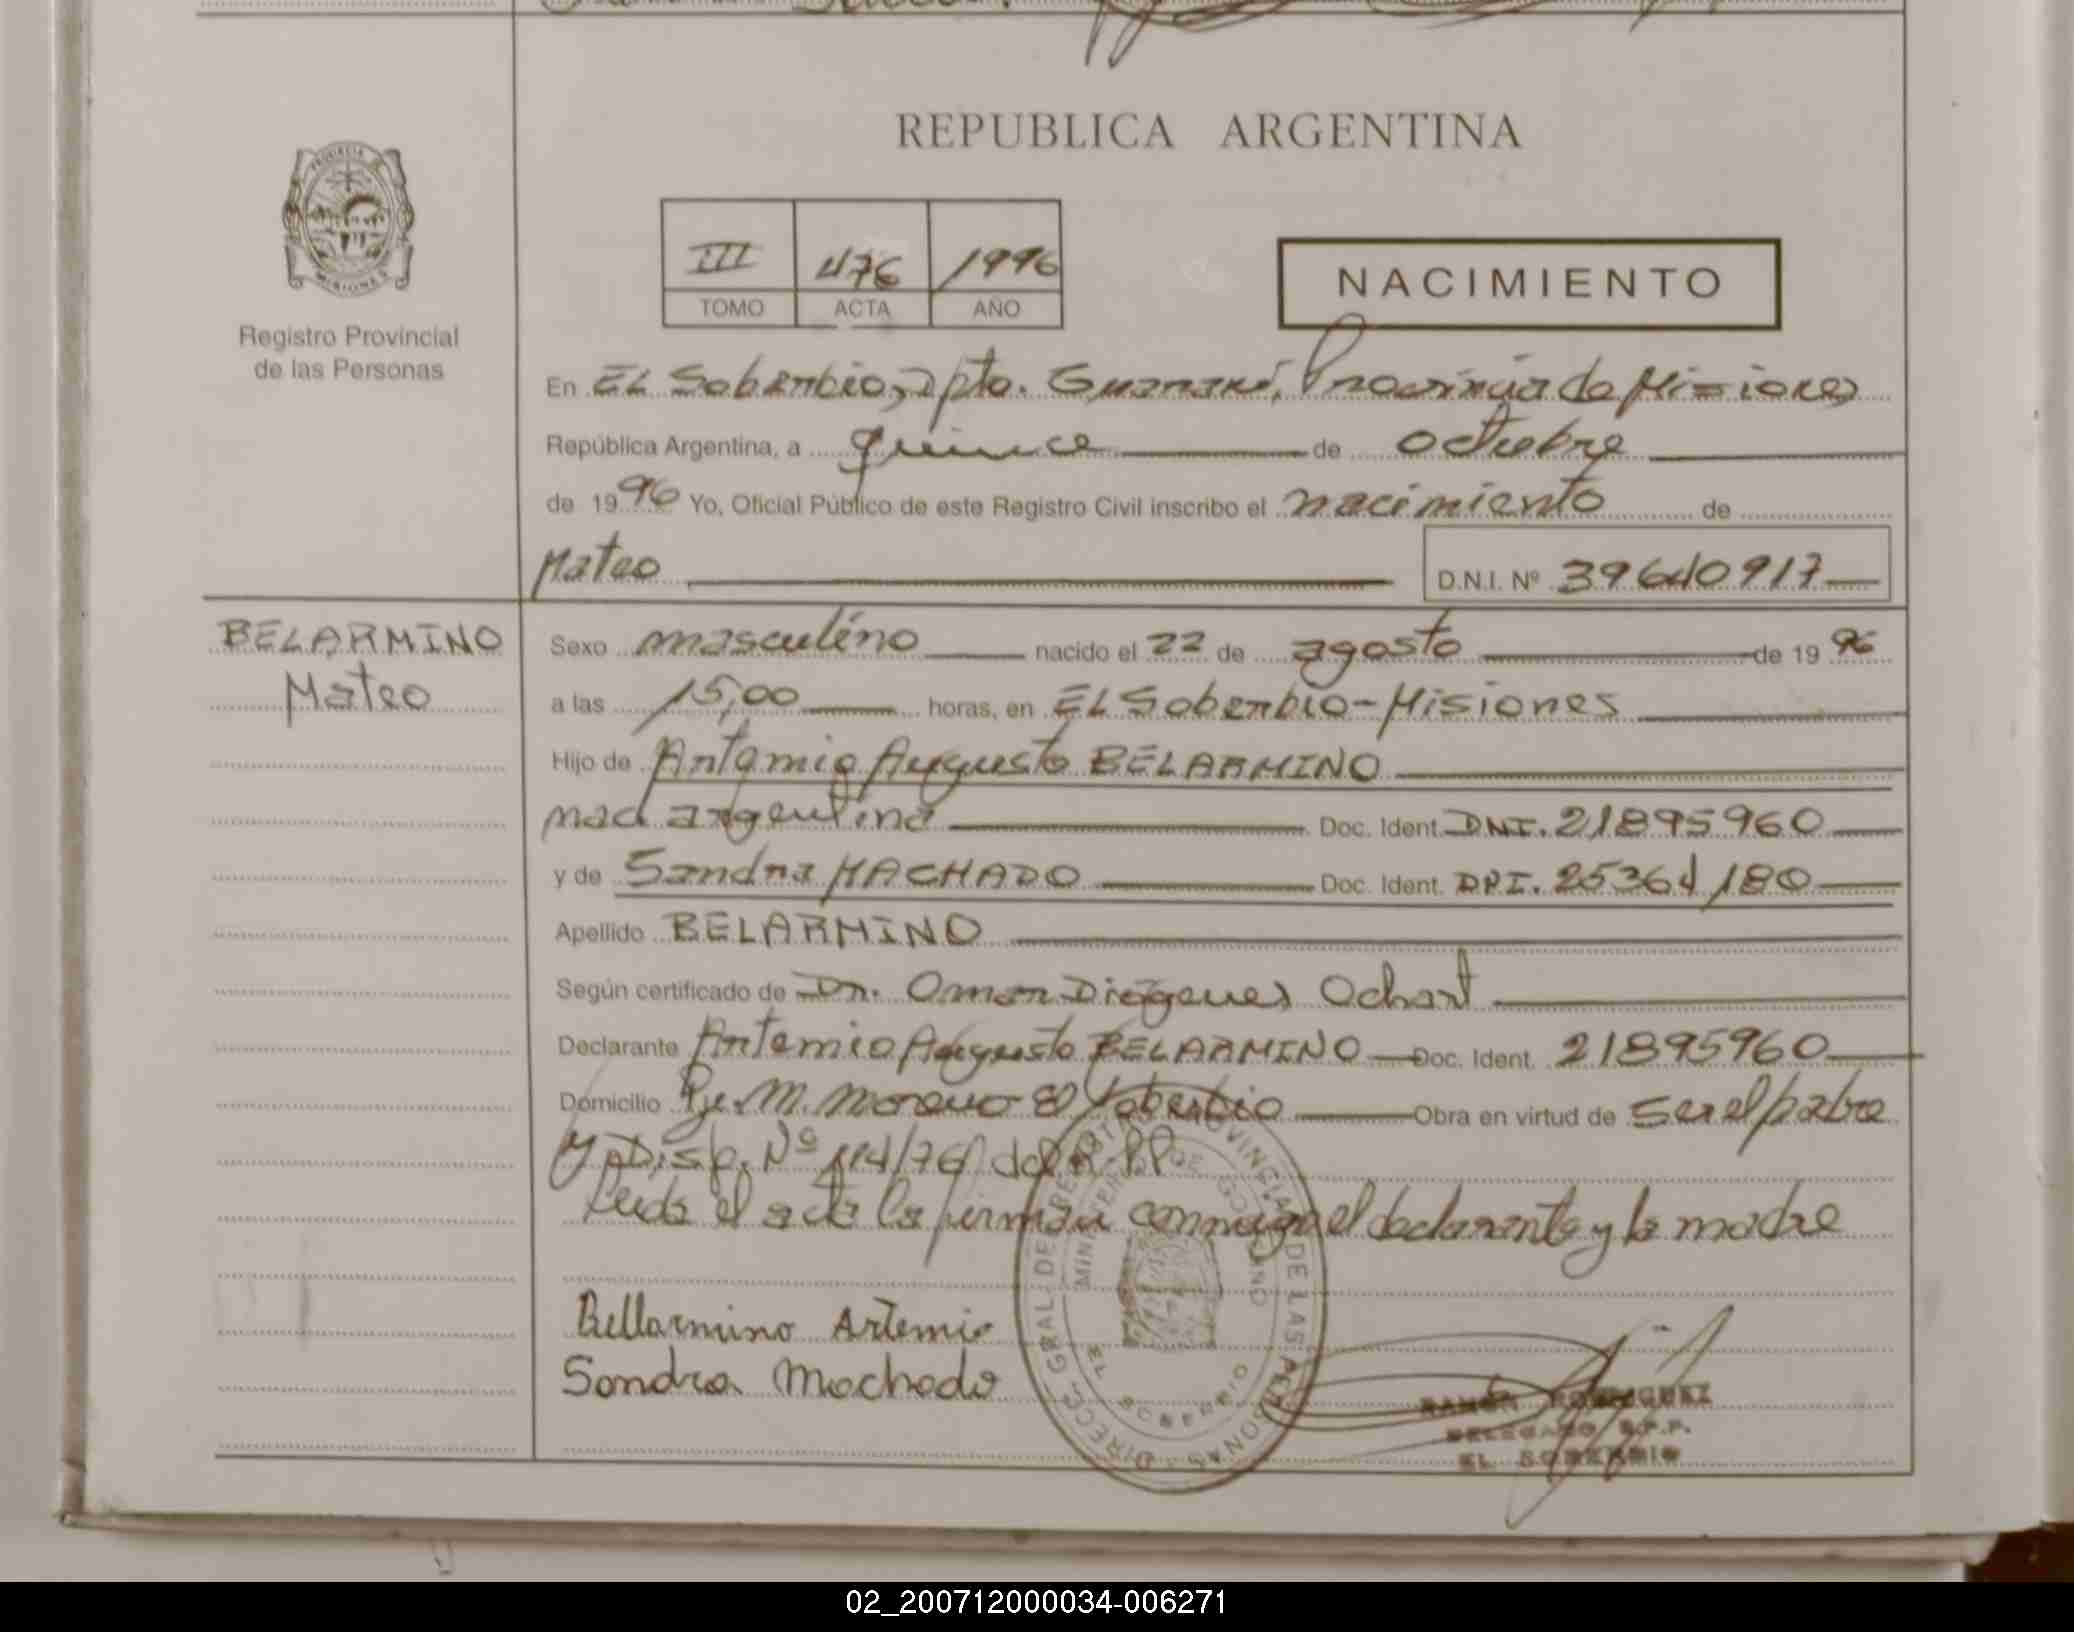 REPUBLICA ARGENTINA
PROVINCIA DE MISIONES
Registro Provincial
de las Personas
III 476 1996
TOMO ACTA AÑO
NACIMIENTO
En EL Soberbio, Dpto. Guaraní, Provincia de Misiones
República Argentina, a quince de octubre
de 1996 Yo, Oficial Público de este Registro Civil inscribo el nacimiento de
Mateo D.N.I. Nº 39640917
BELARMINO
Mateo
Sexo masculino nacido el 22 de agosto de 1996
a las 15,00 horas, en EL Soberbio - Misiones
Hijo de Artemio Augusto BELARMINO
nac. argentina Doc. Ident. DNI. 21895960
y de Sandra MACHADO Doc. Ident. DPI. 25364180
Apellido BELARMINO
Según certificado de Dr. Omar Diógenes Ochart
Declarante Artemio Augusto BELARMINO Doc. Ident. 21895960
Domicilio Pje. M. Moreno El Soberbio Obra en virtud de ser el padre
y Disp. Nº 114/76 del R.P.P.
Leida el acta la firman conmigo el declarante y la madre
Bellarmino Artemio
Sandra Machado
DIRECC. GRAL. DE REGISTRO PROVINCIAL DE LAS PERSONAS
MINISTERIO DE GOBIERNO
EL SOBERBIO
RAMÓN RODRIGUEZ
DELEGADO R.P.P.
EL SOBERBIO
02_200712000034-006271